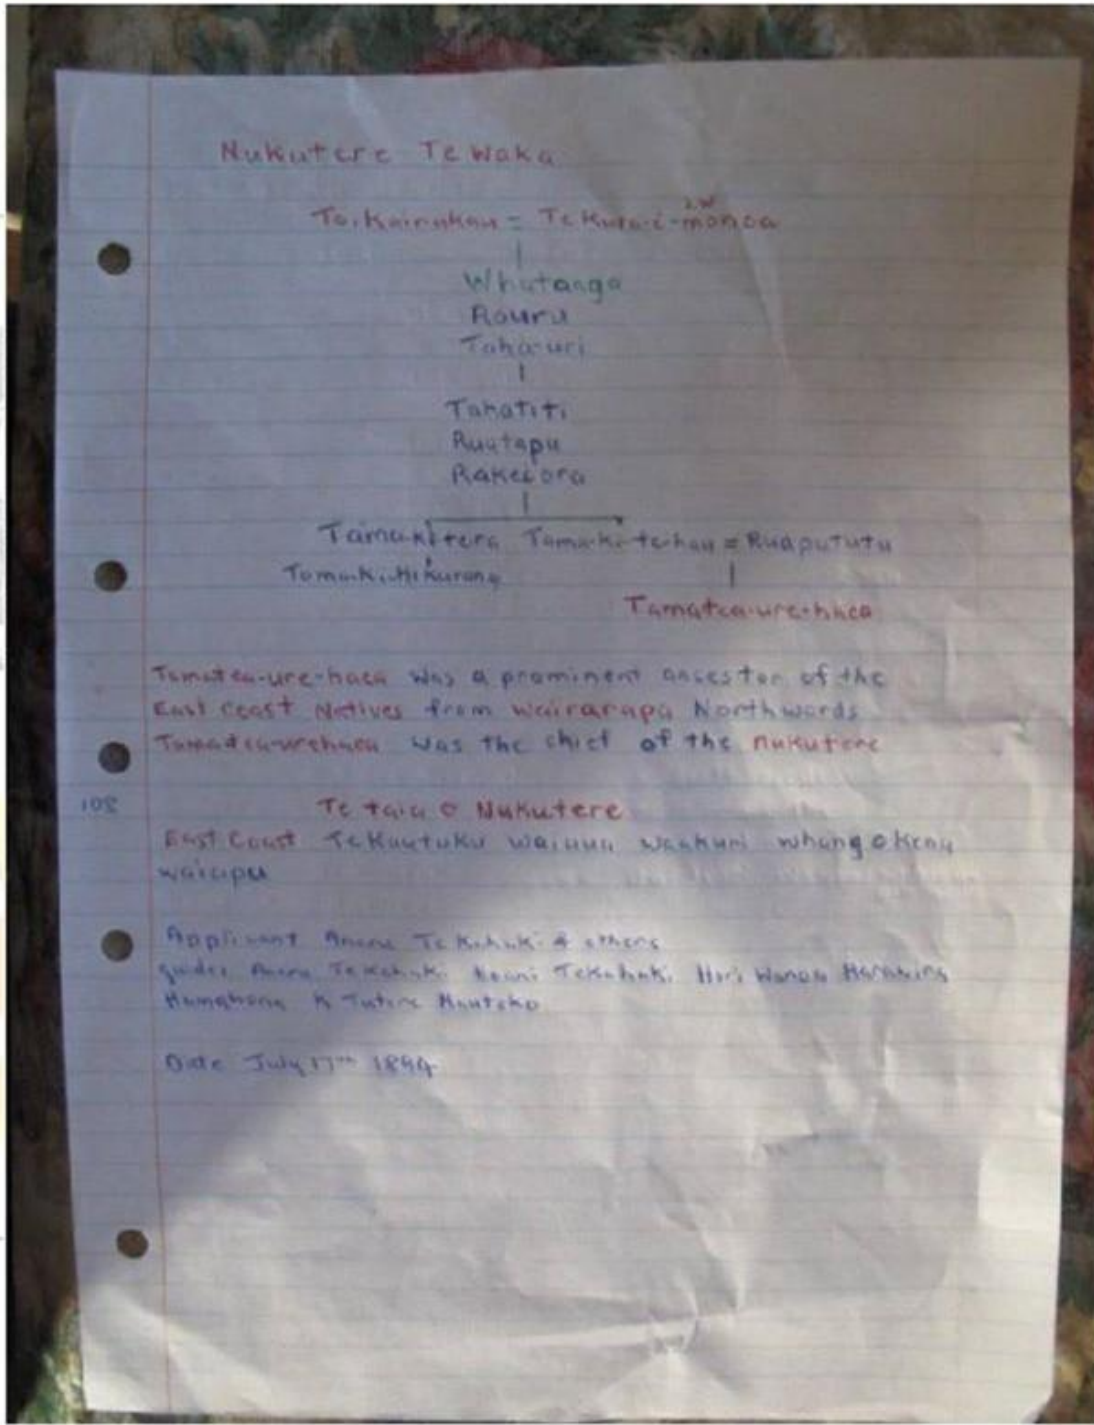 Nukutere Te Waka
Toi.Kairakau = Te Kura-i-monoa
2W
Whatanga
Rauru
Taha-uri
Tahatiti
Ruatapu
Rakeiora
Tamakitera Tama-ki-te-hau = Ruapututu
Tama-Ki-Hikurang
Tamatea-ure-haea
Tamatea-ure-haea was a prominent ansestor of the
East Coast Natives from Wairarapa Northwards
Tamatea-urehaea was the chief of the Nukutere
201 Te taia o Nukutere
East Coast TeKautuku waiaua whang o Kena
waiapu
Applicant Te Kahaki & others
TeKahaki TeKahaki Hori
K
Date July 17th 1894